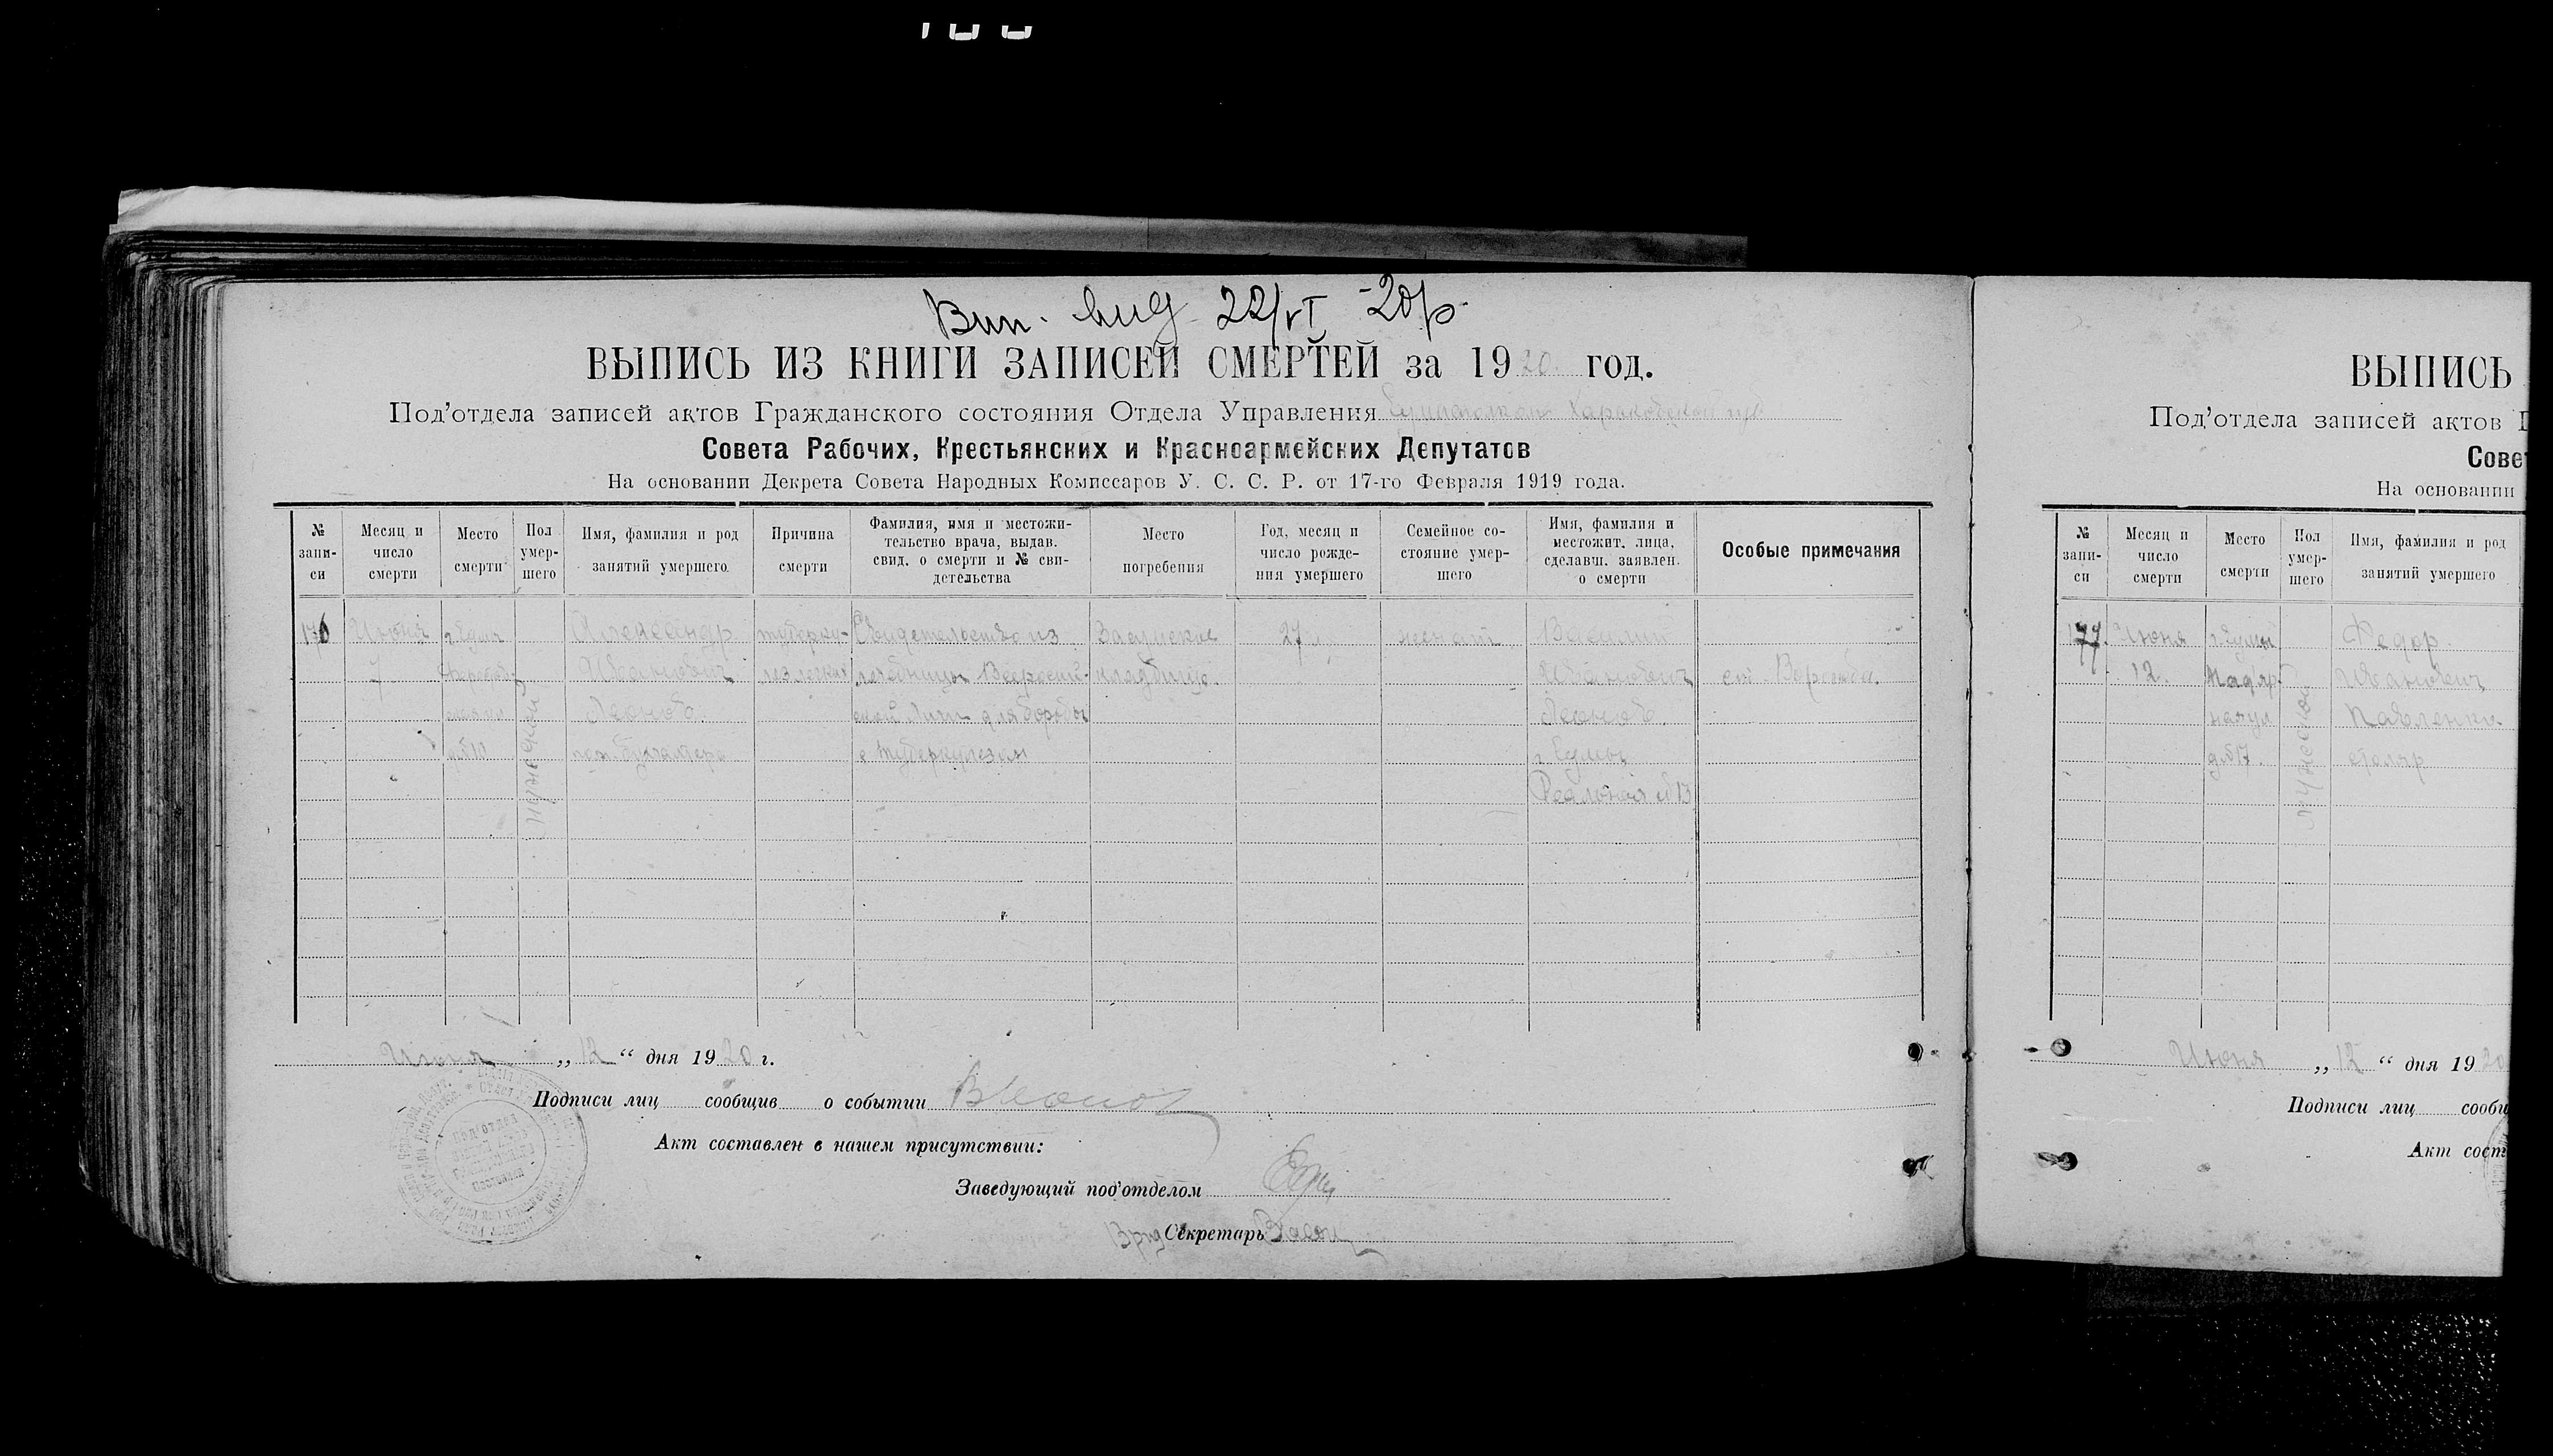 Вип. вид 22/VI -20 р.
ВЫПИСЬ ИЗ КНИГИ ЗАПИСЕЙ СМЕРТЕЙ за 1920 год.
Под'отдела записей актов Гражданского состояния Отдела Управления Харьковской губ
Совета Рабочих, Крестьянских и Красноармейских Депутатов
На основании Декрета Совета Народных Комиссаров У. С. С. Р. от 17-го Февраля 1919 года.
№ запи-си
Месяц и число смерти
Место смерти
Пол умер-шего
Имя, фамилия и род занятий умершего
Причина смерти
Фамилия, имя и местожи-тельство врача, выдав. свид. о смерти и № сви-детельства
Место погребения
Год, месяц и число рожде-ния умершего
Семейное со-стояние умер-шего
Имя, фамилия и местожит. лица, сделавш. заявлен. о смерти
Особые примечания
176
Июня
7
мужской
Александр
Иванович
Леонов
пом. бухгалтера
туберку-
лез легких
Свидетельство из
лечебницы Всеросий-
ской Лиги для борьбы
с туберкулезом
Засумское
кладбище.
27
женат
Василий
Иванович
Леонов.
г. Сумы
Реальная №13
ст. Ворожба.
Июня „ 12 “ дня 1920 г.
Подписи лиц сообщив о событии ВЛеонов
Акт составлен в нашем присутствии:
Заведующий под'отделом
Врид Секретарь
ВЫПИСЬ
Под'отдела записей актов Г
Сове
На основании
№ запи-си
Месяц и число смерти
Место смерти
Пол умер-шего
Имя, фамилия и род занятий умершего
177.
Июня
12.
г. Сумы
д. №17.
мужской
Федор
Иванович
Павленко
столяр
Июня „ 12 “ дня 1920
Подписи лиц сооби
Акт сост